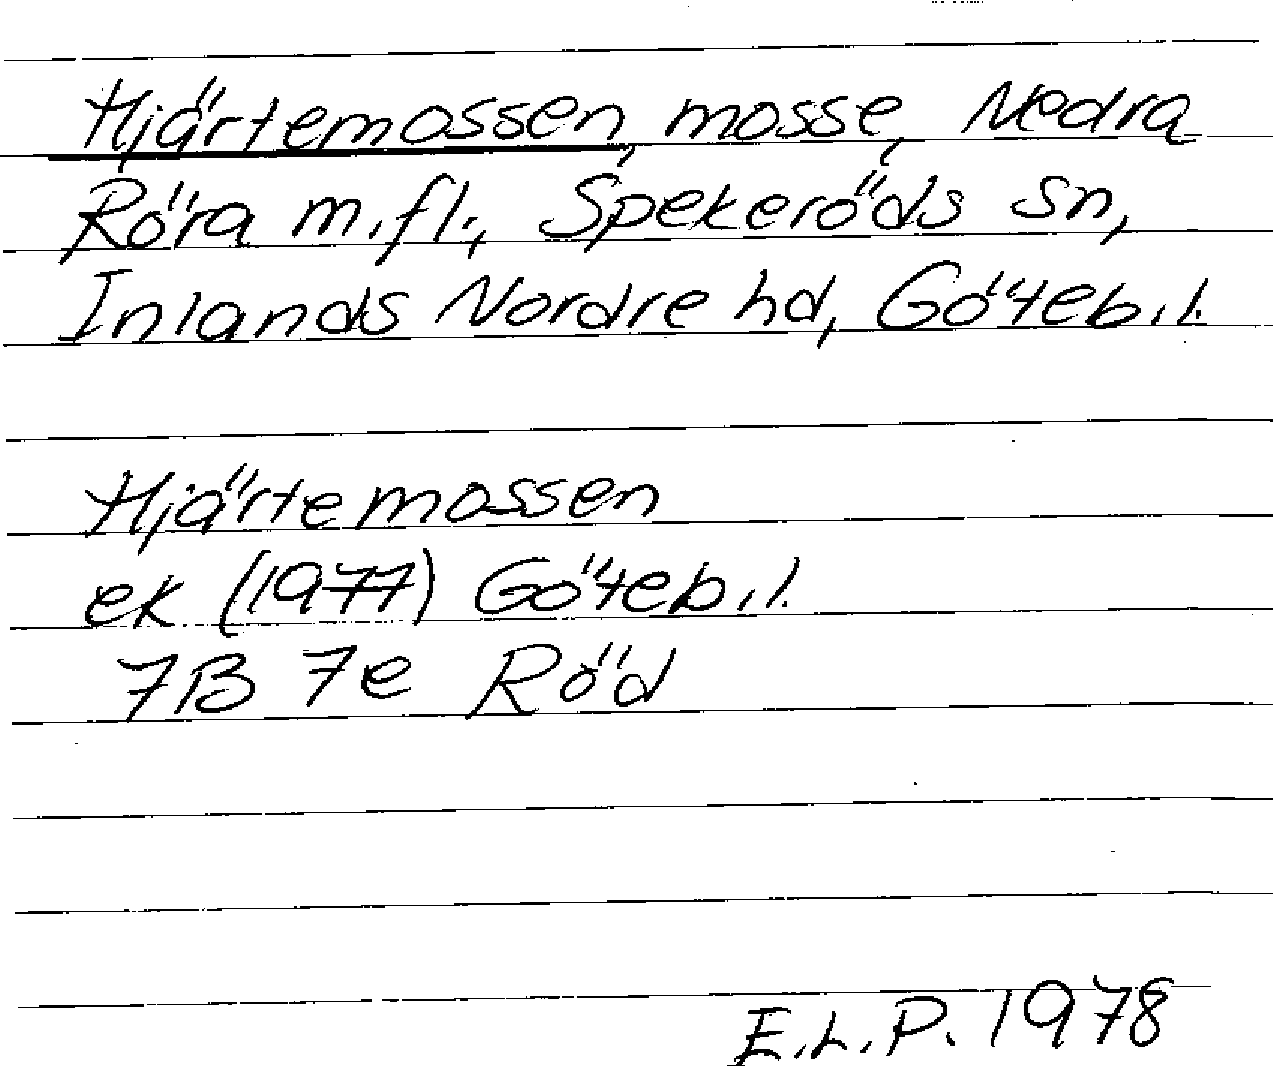 Hjärtemossen, mosse, Nedra
Röra m.fl., Spekeröds sn,
Inlands Nordre hd, Göteb.l.
Hjärtemossen
ek (1977) Göteb.l.
7B 7e Röd
E.L.P. 1978